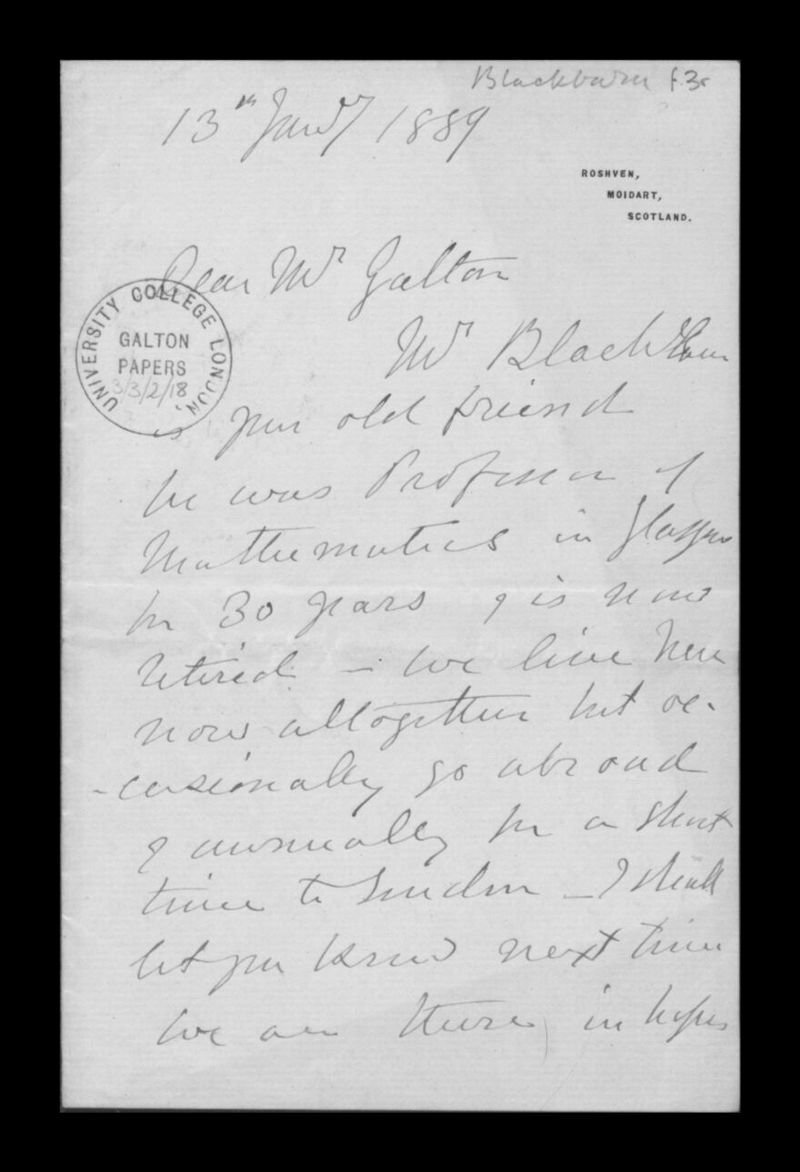 Blackburn f.3r
13th Jany 1889
ROSHVEN,
MOIDART,
SCOTLAND.
Dear Mr Galton
UNIVERSITY COLLEGE LONDON,
GALTON
PAPERS
3/3/2/18
Mr Blackburn
is your old friend
he was Professor of
Mathematics in Glasgow
for 30 years & is now
retired - we live here
now altogether but oc-
-casionally go abroad
& annually for a short
time to London - I shall
let you know next time
we are there, in hopes